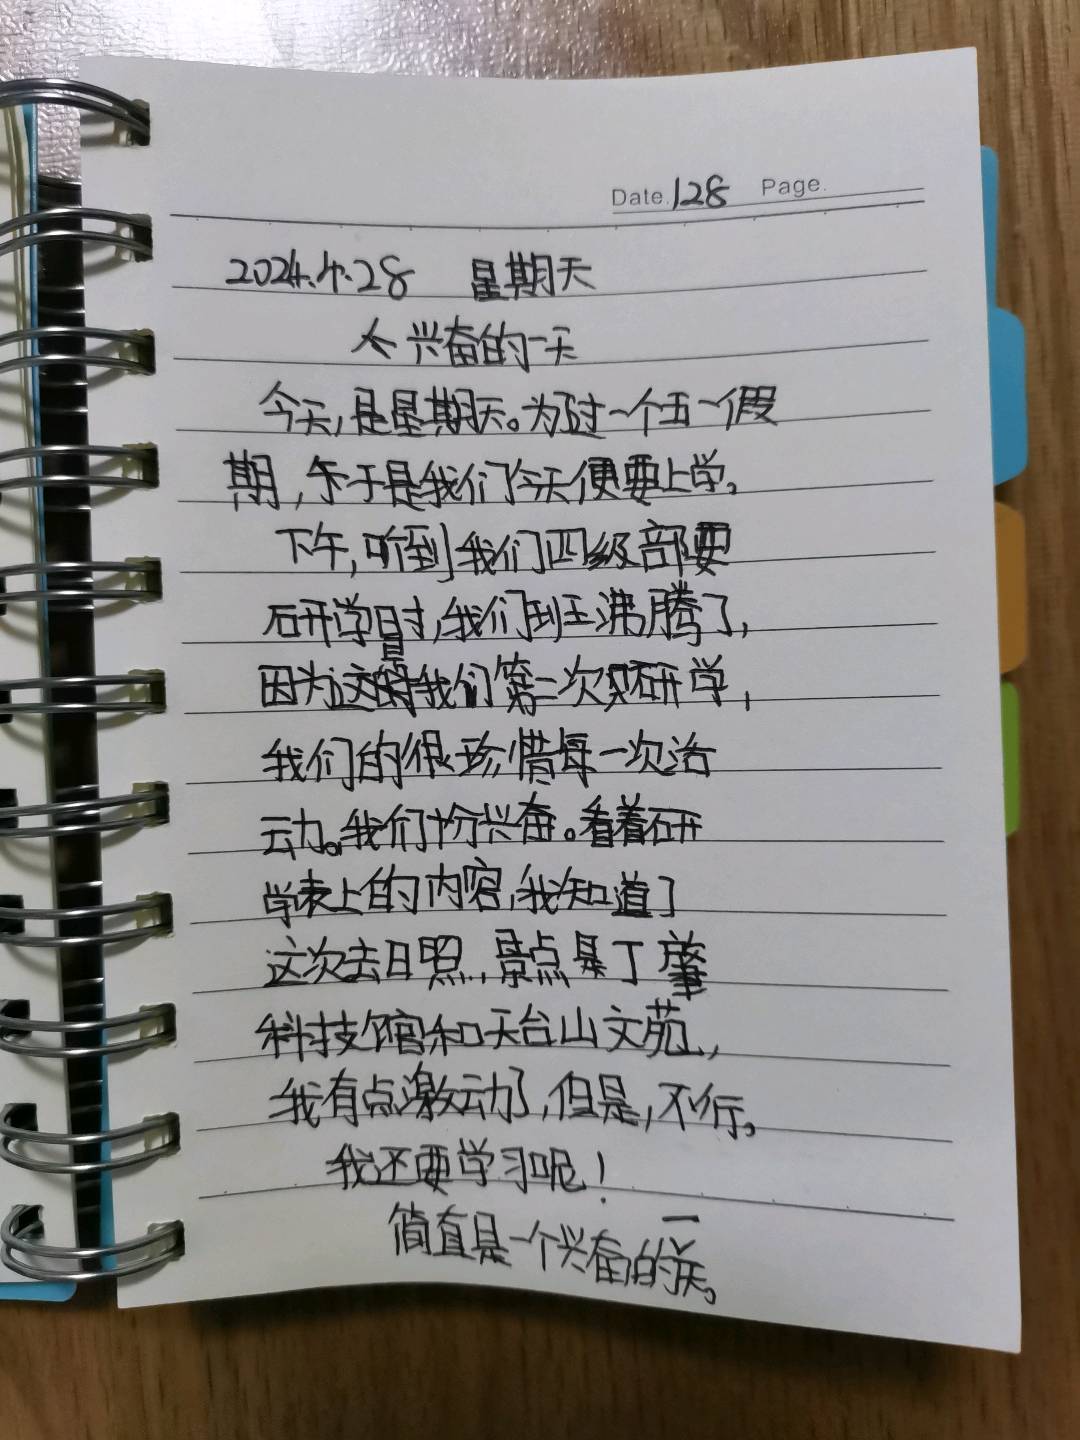 Date. 128 Page.
2024.4.28 星期天
兴奋的一天
今天,是星期天。为了过一个五一假
期,于是我们今天便要上学。
下午,听到我们四级部要
研学时,我们班沸腾了,
因为这是我们第二次研学,
我们的很珍惜每一次活
动。我们十分兴奋。看着研
学表上的内容,我知道了
这次去日照,景点是丁肇
科技馆和天台山文苑,
我有点激动了,但是,不行。
我还要学习呢!
简直是一个兴奋的一天。